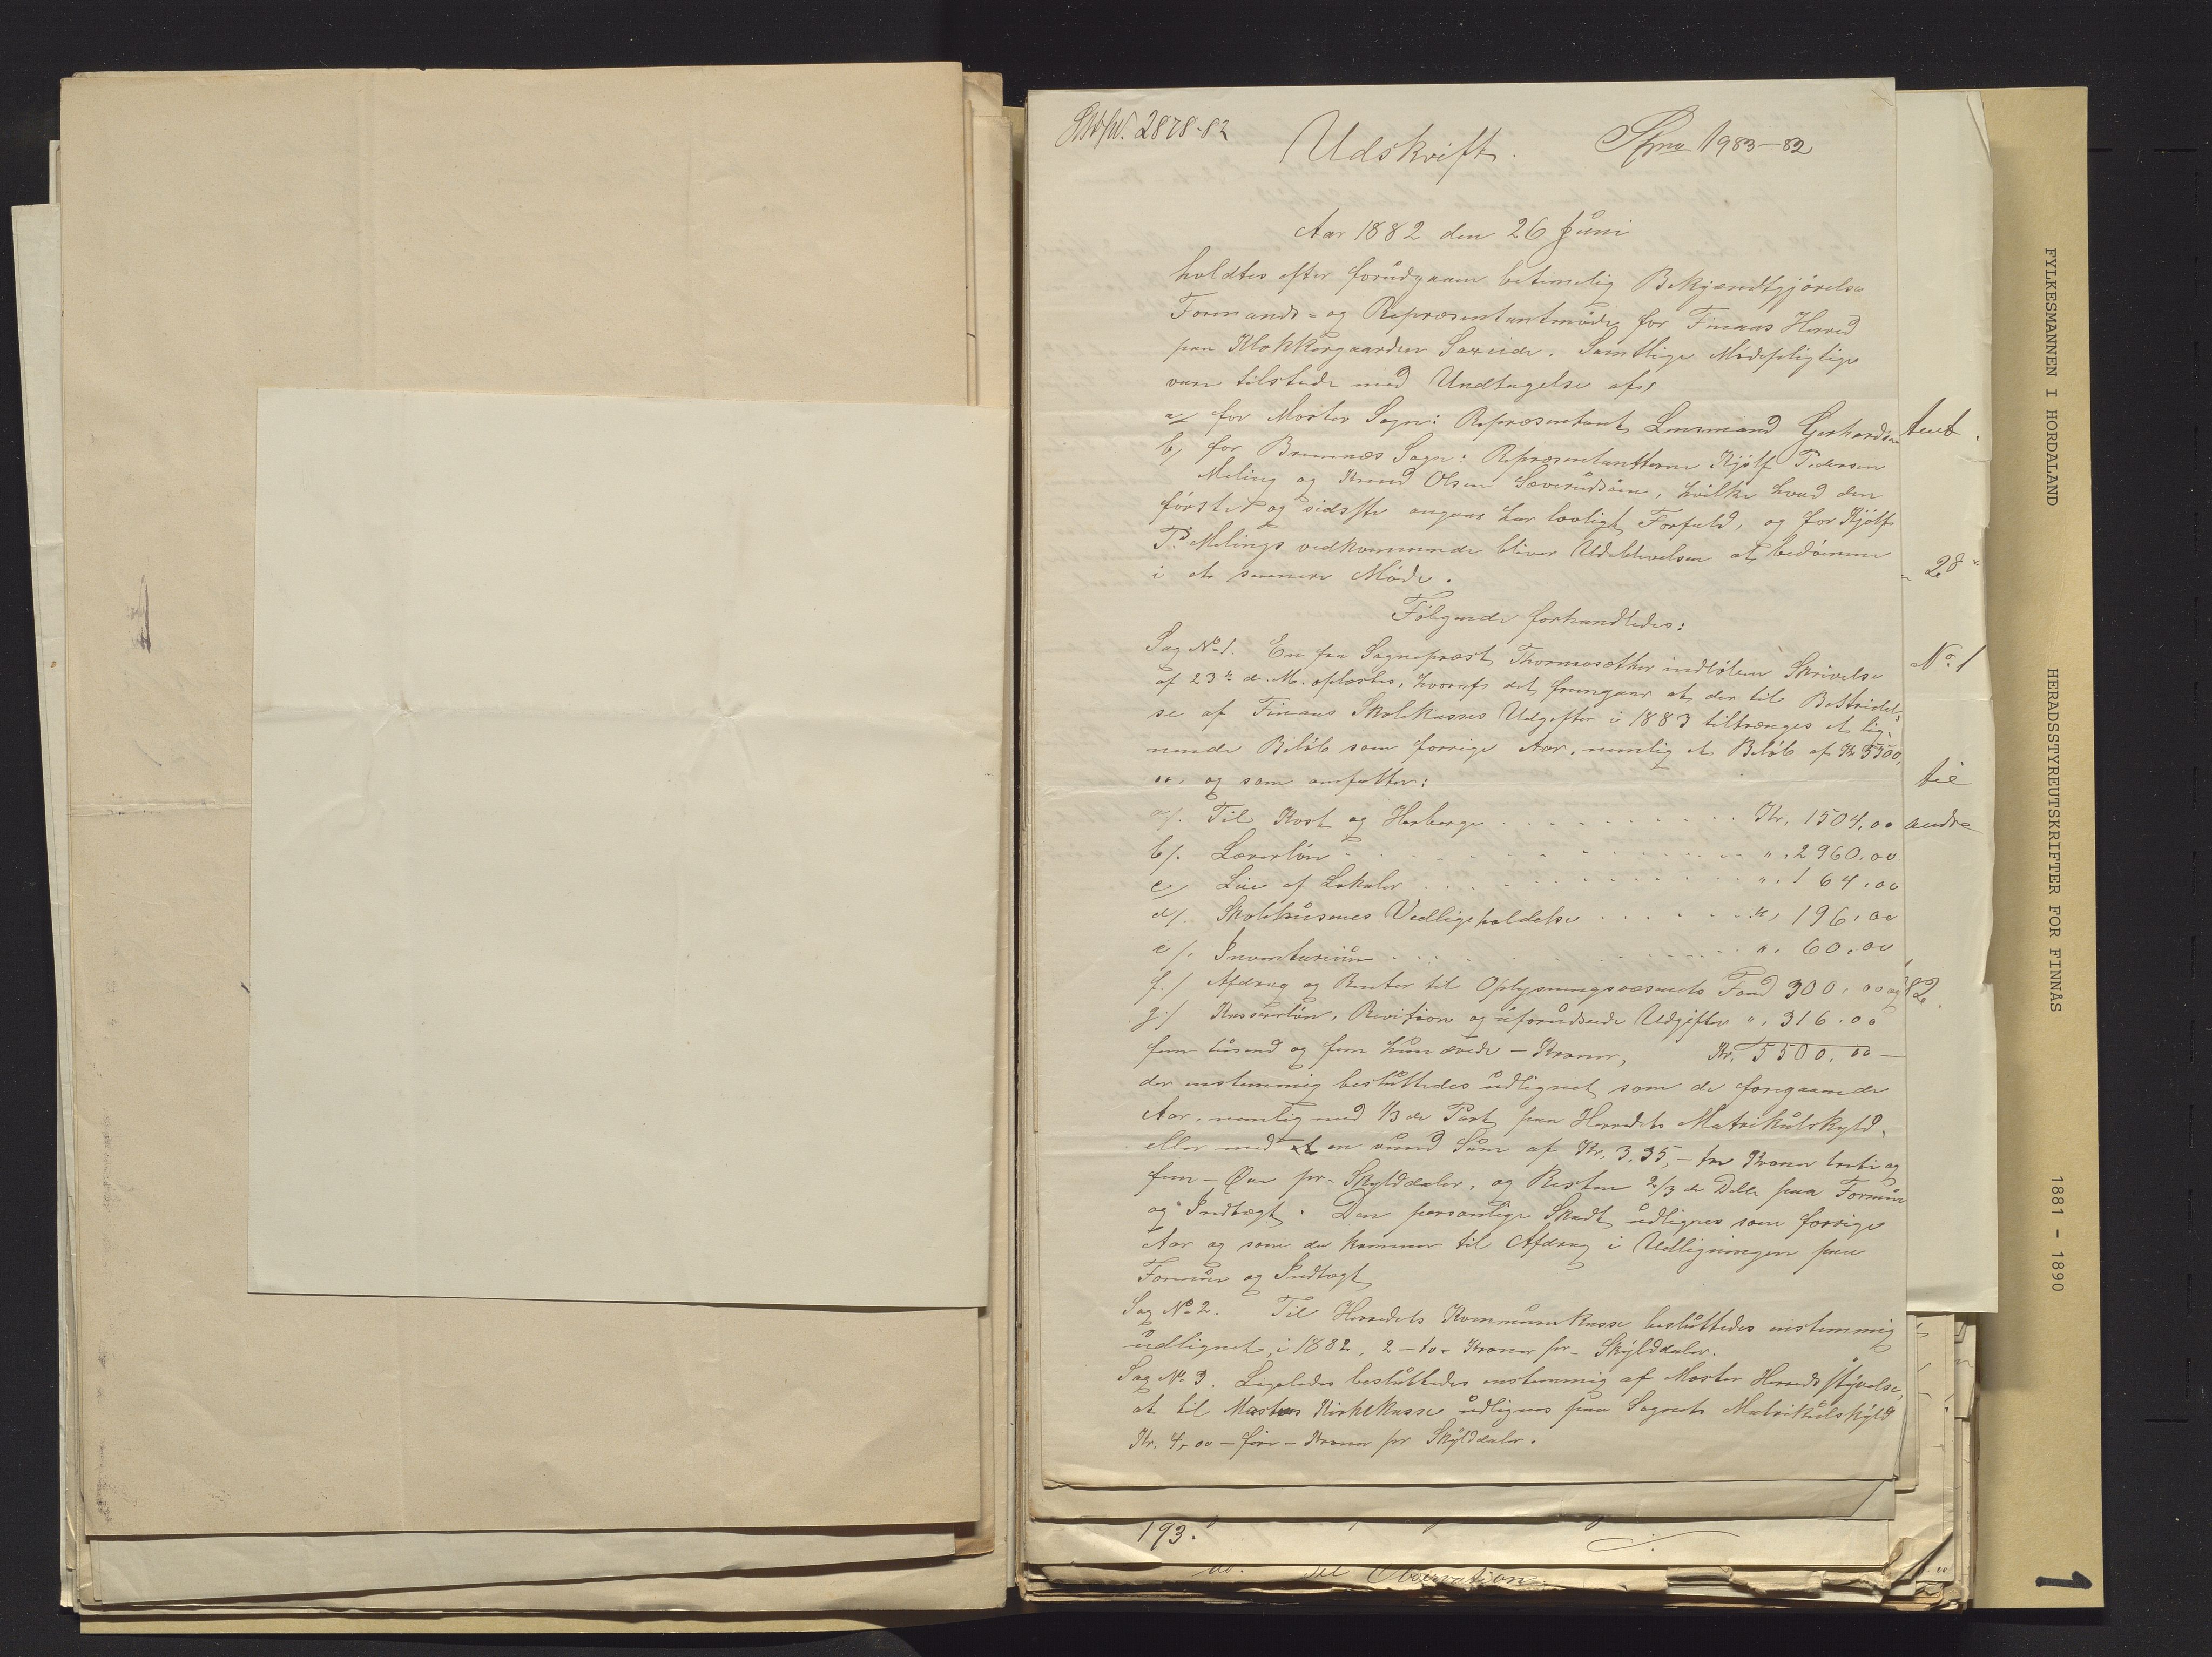 2878-82
Udskrift.
1983-82
Aar 1882 den 26 Juni
holdtes efter forudgaaen betimelig Bekjendtgjörelse
Formands- og Repræsentantmöde for Finaas Herred
paa Klokkergaarden Sæeide. Samtlige Mödepligtige
vare tilstede med Undtagelse af,
a/ for Moster Sogn: Repræsentant Lensmand Gerhardsen
b, for Bremnæs Sogn: Repræsentanterne Kjölf Pedersen
Meling og Knud Olsen Sæverudsöen, hvilke hvad den
förste og sidste angaar har lovligt Forfald, og for Kjölf
P. Melings vedkommende bliver Udeblivelsen at bedömme
i et senere Möde.
Fölgende forhandledes:
Sag No 1. En fra Sogneprest Thormosæther indlöben Skrivelse
af 23de d. M. oplæstes, hvoraf det fremgaar at der til Bestridel-
se af Finaas Skolekasses Udgifter i 1883 tiltrænges et lig-
nende Belöb som forrige Aar, nemlig et Belöb af Kr 5500,
00, og som omfatter:
a/. Til Kost og Herberge . . . . . . . . . . Kr. 1504,00
b/. Lærerlön - - - - - - - - - - " 2960,00
c/ Leie af Lokaler . . . . . . . . . . " 164,00
d/. Skolehusenes Vedligeholdelse . . . . . . " 196,00
e/. Inventarium . . . . . . . . . . " 60,00
f./ Afdrag og Renter til Oplysningsvæsenets Fond 300,00
g/ Kassererlön, Revition og uforudseede Udgifter " 316,00
fem tusend og fem hundrede - Kroner, Kr. 5500,00 -
der enstemmig besluttedes udlignet som de foregaaende
Aar, nemlig med 1/3 de Part paa Herredets Matrikulskyld,
eller med en rund Sum af Kr. 3,35, - tre Kroner treti og
fem - Öre pr. Skylddaler, og Resten 2/3 de Dele paa Formue
og Indtægt. Den personlige Skadt udlignes som forrige
Aar og som da kommer til Afdrag i Udligningen paa
Formue og Indtægt
Sag No 2. Til Herredets Kommunekasse besluttedes enstemmig
udlignet, i 1882, 2 - to - Kroner pr. Skylddaler.
Sag No 3. Ligeledes besluttedes enstemmig af Moster Herredsstyrelse,
at til Mosters Kirkekasse udlignes paa Sognets Matrikulskyld
Kr. 4,00 - fire - Kroner pr Skylddaler.
28
No. 1
til
andre
82.
193.
do. til Observation
FYLKESMANNEN I HORDALAND
HERADSSTYREUTSKRIFTER FOR FINNÅS
1881 - 1890
1